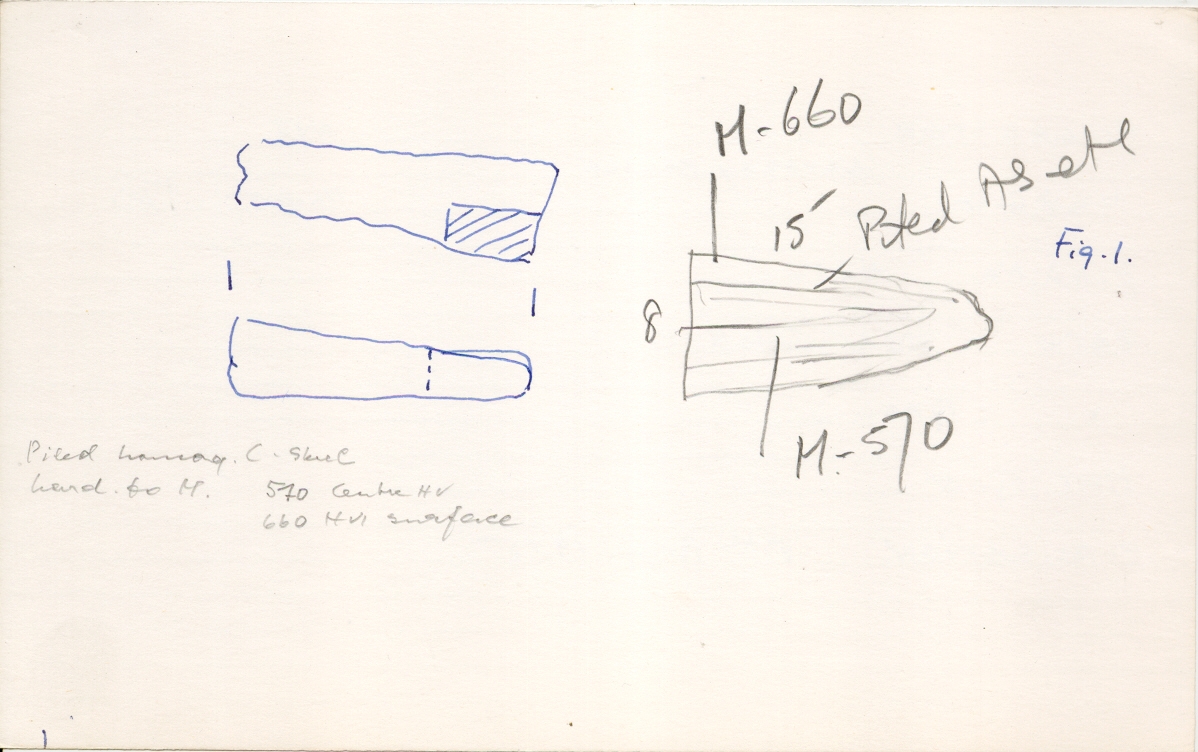 M-660
15
Piled As etch
Fig. 1.
8
M-570
Piled homog. C-steel
hard. to M. 570 centre HV
660 HV1 surface